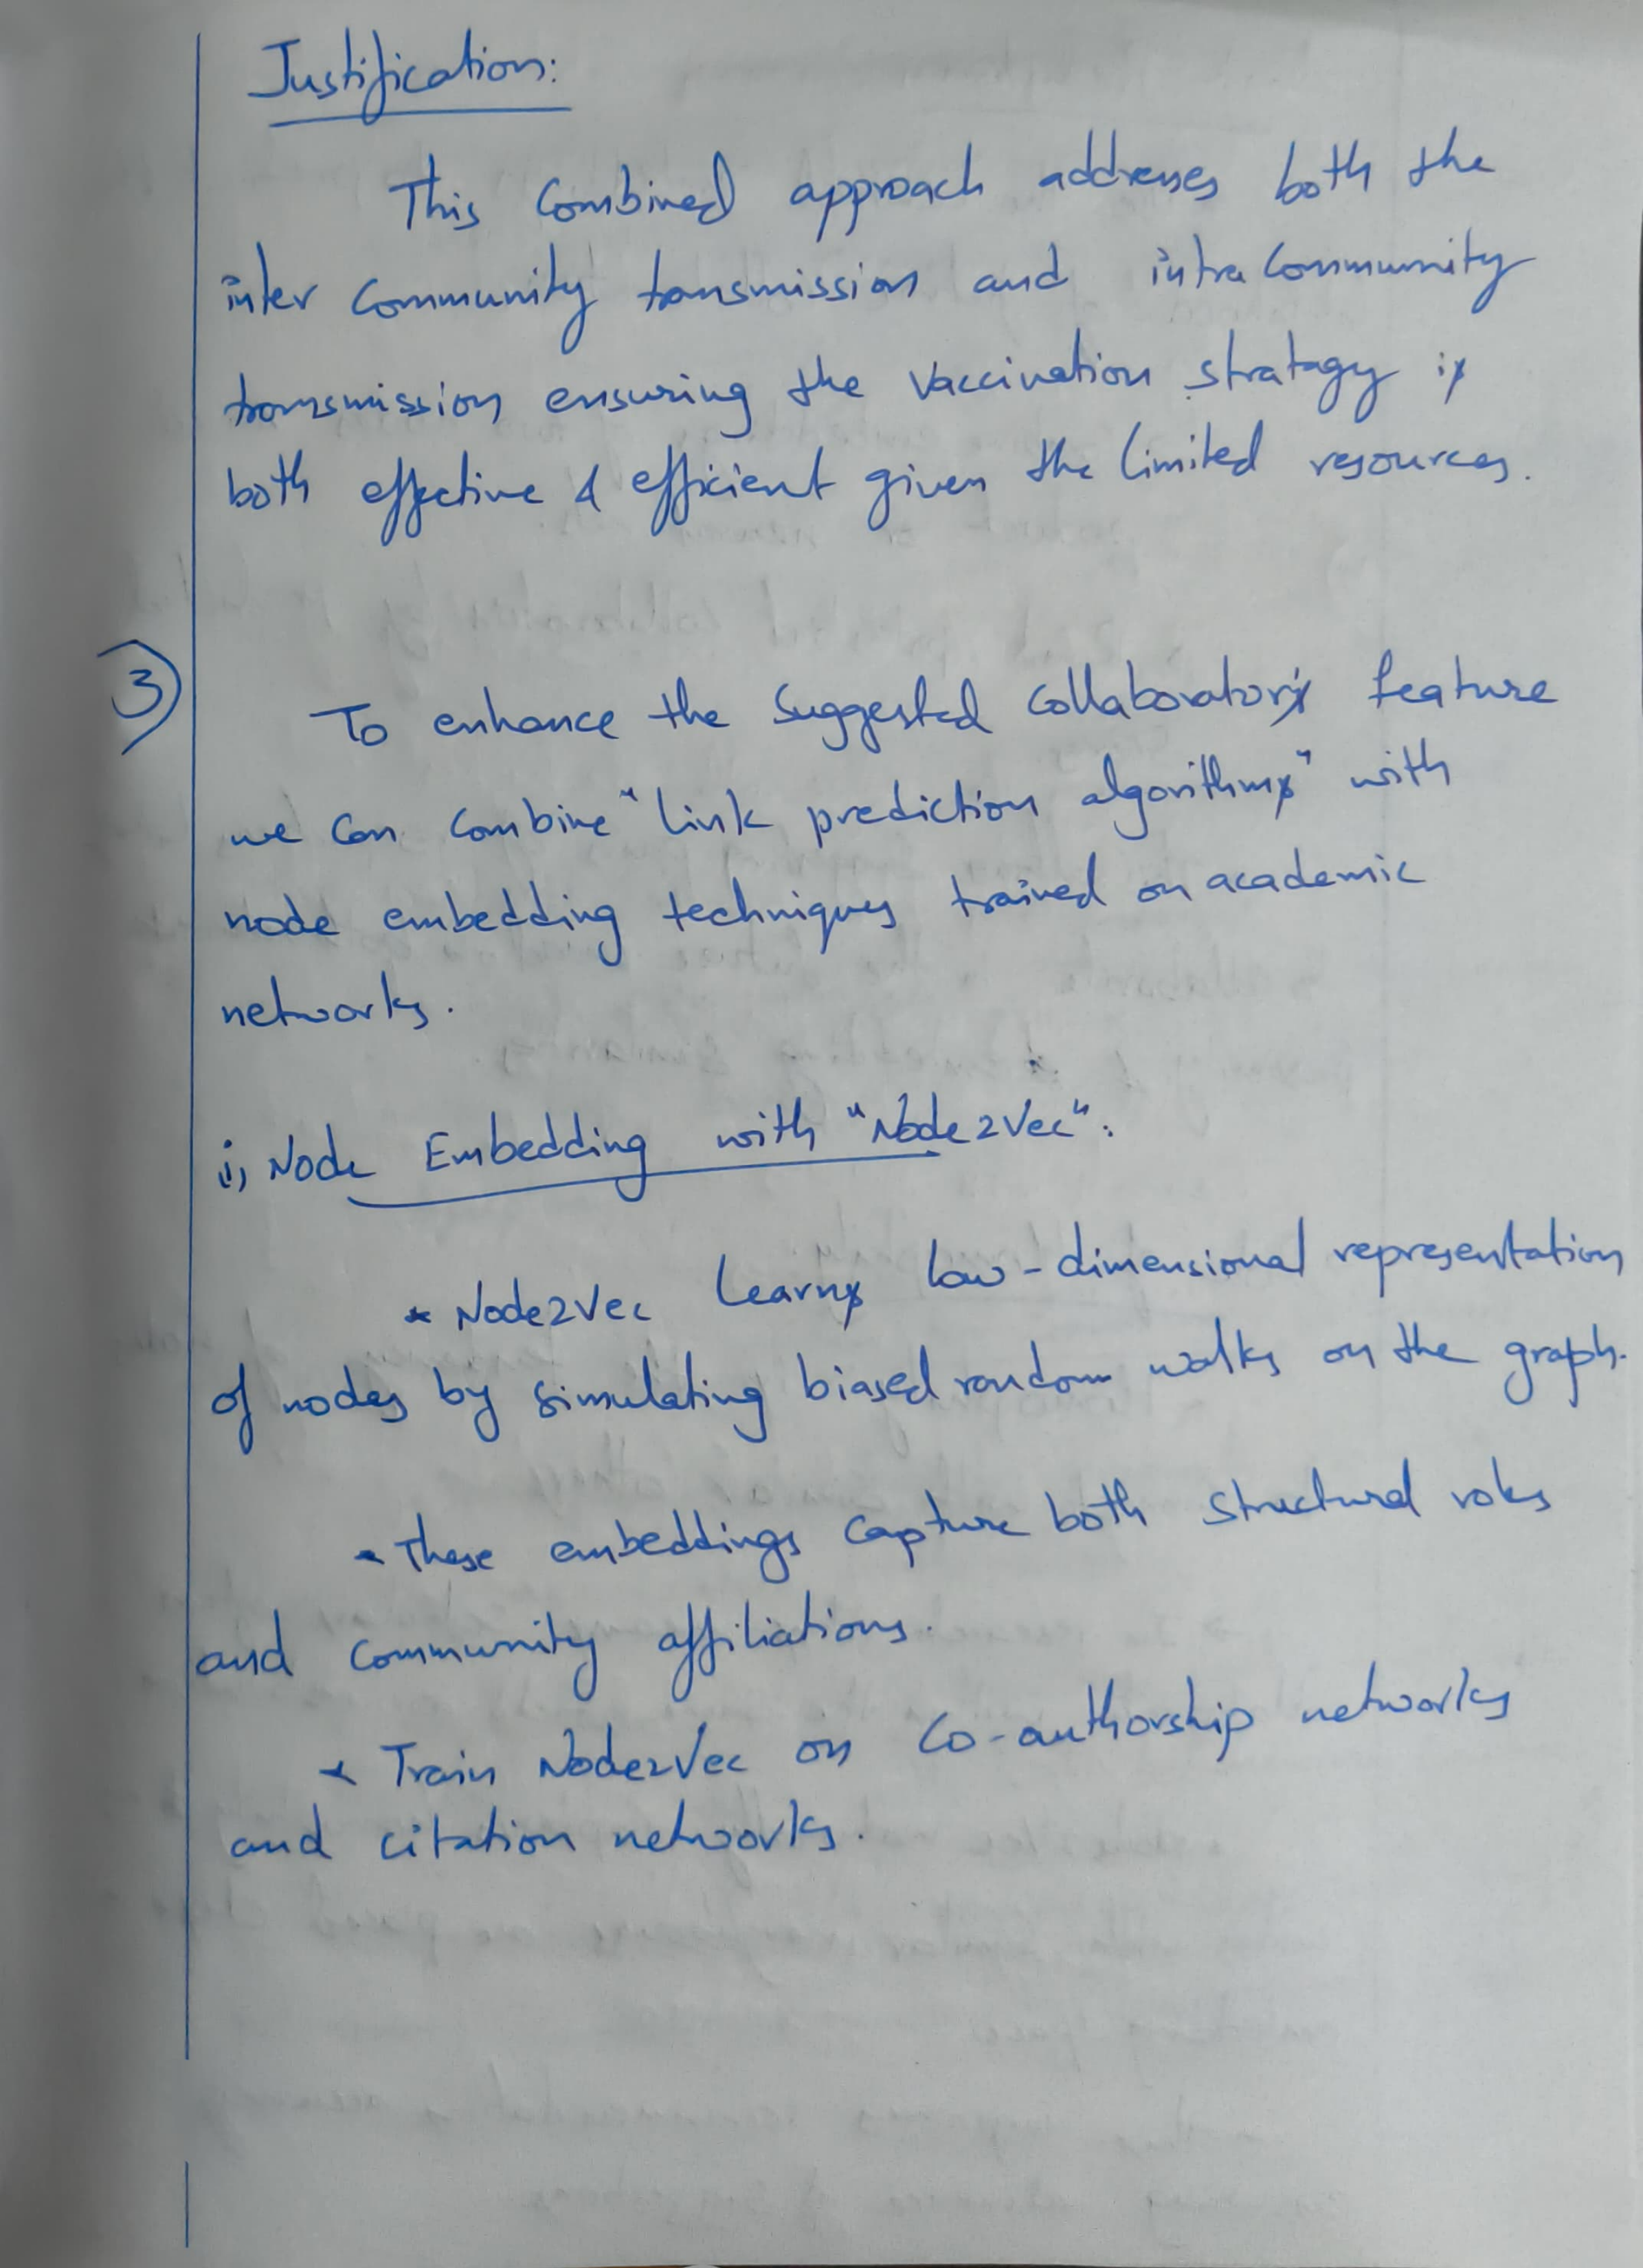 Justification:
This Combined approach addresses both the
inter Community transmission and intra Community
transmission ensuring the Vaccination stratagy is
both effective & efficient given the limited resources.
3)
To enhance the Suggested Collaborators feature
we can combine "link prediction algorithms" with
node embedding techniques trained on academic
networks.
i) Node Embedding with "Node2Vec":
* Node2Vec learns low-dimensional representation
of nodes by simulating biased random walks on the graph.
* These embeddings capture both structural roles
and community affiliations.
* Train Node2Vec on Co-authorship networks
and citation networks.